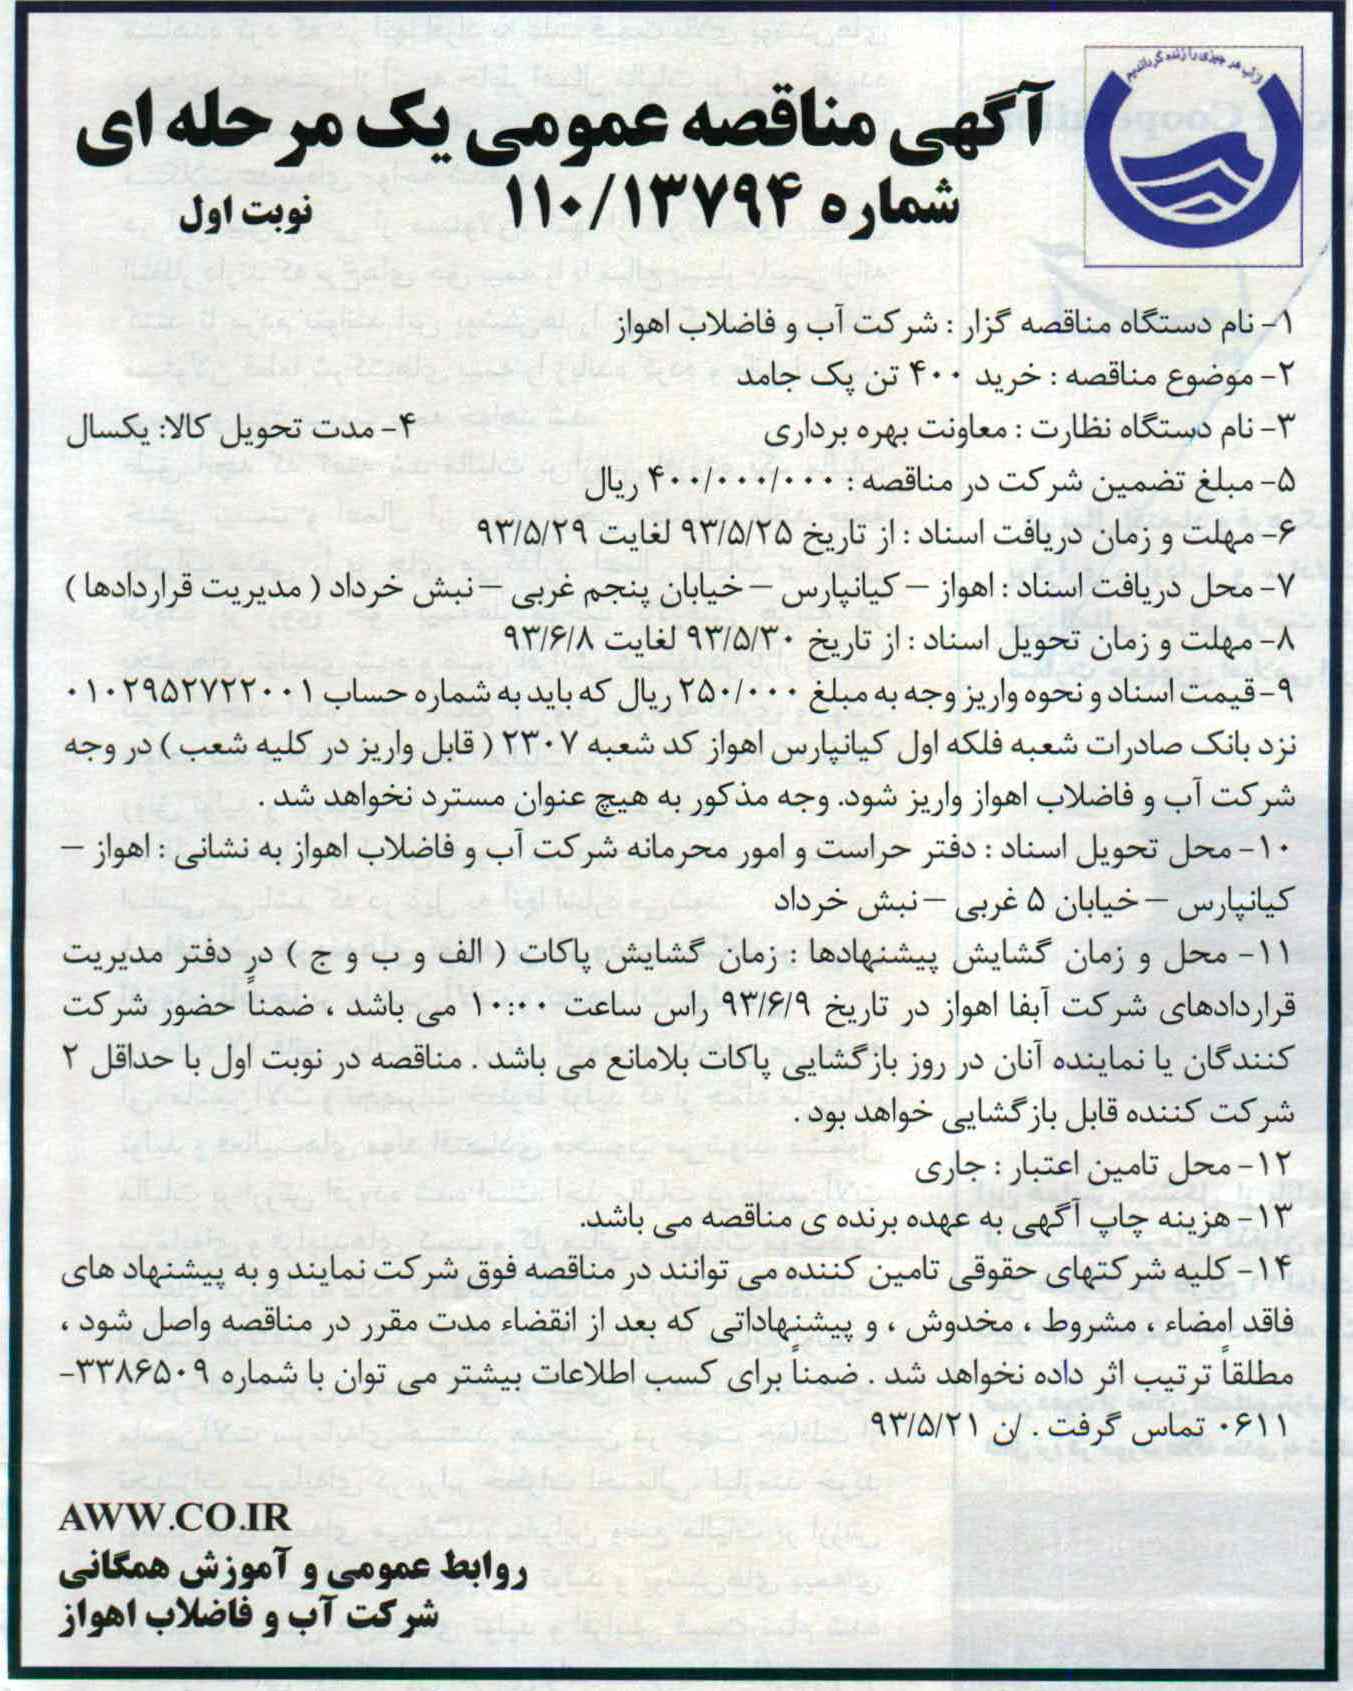 از آب هر چیزی را زنده گرداندیم
آگهی مناقصه عمومی یک مرحله ای
شماره ۱۱۰/۱۳۷۹۴
نوبت اول
۱- نام دستگاه مناقصه گزار : شرکت آب و فاضلاب اهواز
۲- موضوع مناقصه : خرید ۴۰۰ تن پک جامد
۳- نام دستگاه نظارت : معاونت بهره برداری ۴- مدت تحویل کالا: یکسال
۵- مبلغ تضمین شرکت در مناقصه : ۴۰۰/۰۰۰/۰۰۰ ریال
۶- مهلت و زمان دریافت اسناد : از تاریخ ۹۳/۵/۲۵ لغایت ۹۳/۵/۲۹
۷- محل دریافت اسناد : اهواز – کیانپارس – خیابان پنجم غربی – نبش خرداد ( مدیریت قراردادها )
۸- مهلت و زمان تحویل اسناد : از تاریخ ۹۳/۵/۳۰ لغایت ۹۳/۶/۸
۹- قیمت اسناد و نحوه واریز وجه به مبلغ ۲۵۰/۰۰۰ ریال که باید به شماره حساب ۰۱۰۲۹۵۲۷۲۲۰۰۱
نزد بانک صادرات شعبه فلکه اول کیانپارس اهواز کد شعبه ۲۳۰۷ ( قابل واریز در کلیه شعب ) در وجه
شرکت آب و فاضلاب اهواز واریز شود. وجه مذکور به هیچ عنوان مسترد نخواهد شد .
۱۰- محل تحویل اسناد : دفتر حراست و امور محرمانه شرکت آب و فاضلاب اهواز به نشانی : اهواز –
کیانپارس – خیابان ۵ غربی – نبش خرداد
۱۱- محل و زمان گشایش پیشنهادها : زمان گشایش پاکات ( الف و ب و ج ) در دفتر مدیریت
قراردادهای شرکت آبفا اهواز در تاریخ ۹۳/۶/۹ راس ساعت ۱۰:۰۰ می باشد ، ضمناً حضور شرکت
کنندگان یا نماینده آنان در روز بازگشایی پاکات بلامانع می باشد . مناقصه در نوبت اول با حداقل ۲
شرکت کننده قابل بازگشایی خواهد بود .
۱۲- محل تامین اعتبار : جاری
۱۳- هزینه چاپ آگهی به عهده برنده ی مناقصه می باشد.
۱۴- کلیه شرکتهای حقوقی تامین کننده می توانند در مناقصه فوق شرکت نمایند و به پیشنهاد های
فاقد امضاء ، مشروط ، مخدوش ، و پیشنهاداتی که بعد از انقضاء مدت مقرر در مناقصه واصل شود ،
مطلقاً ترتیب اثر داده نخواهد شد . ضمناً برای کسب اطلاعات بیشتر می توان با شماره ۳۳۸۶۵۰۹-
۰۶۱۱ تماس گرفت . /ن ۹۳/۵/۲۱
AWW.CO.IR
روابط عمومی و آموزش همگانی
شرکت آب و فاضلاب اهواز